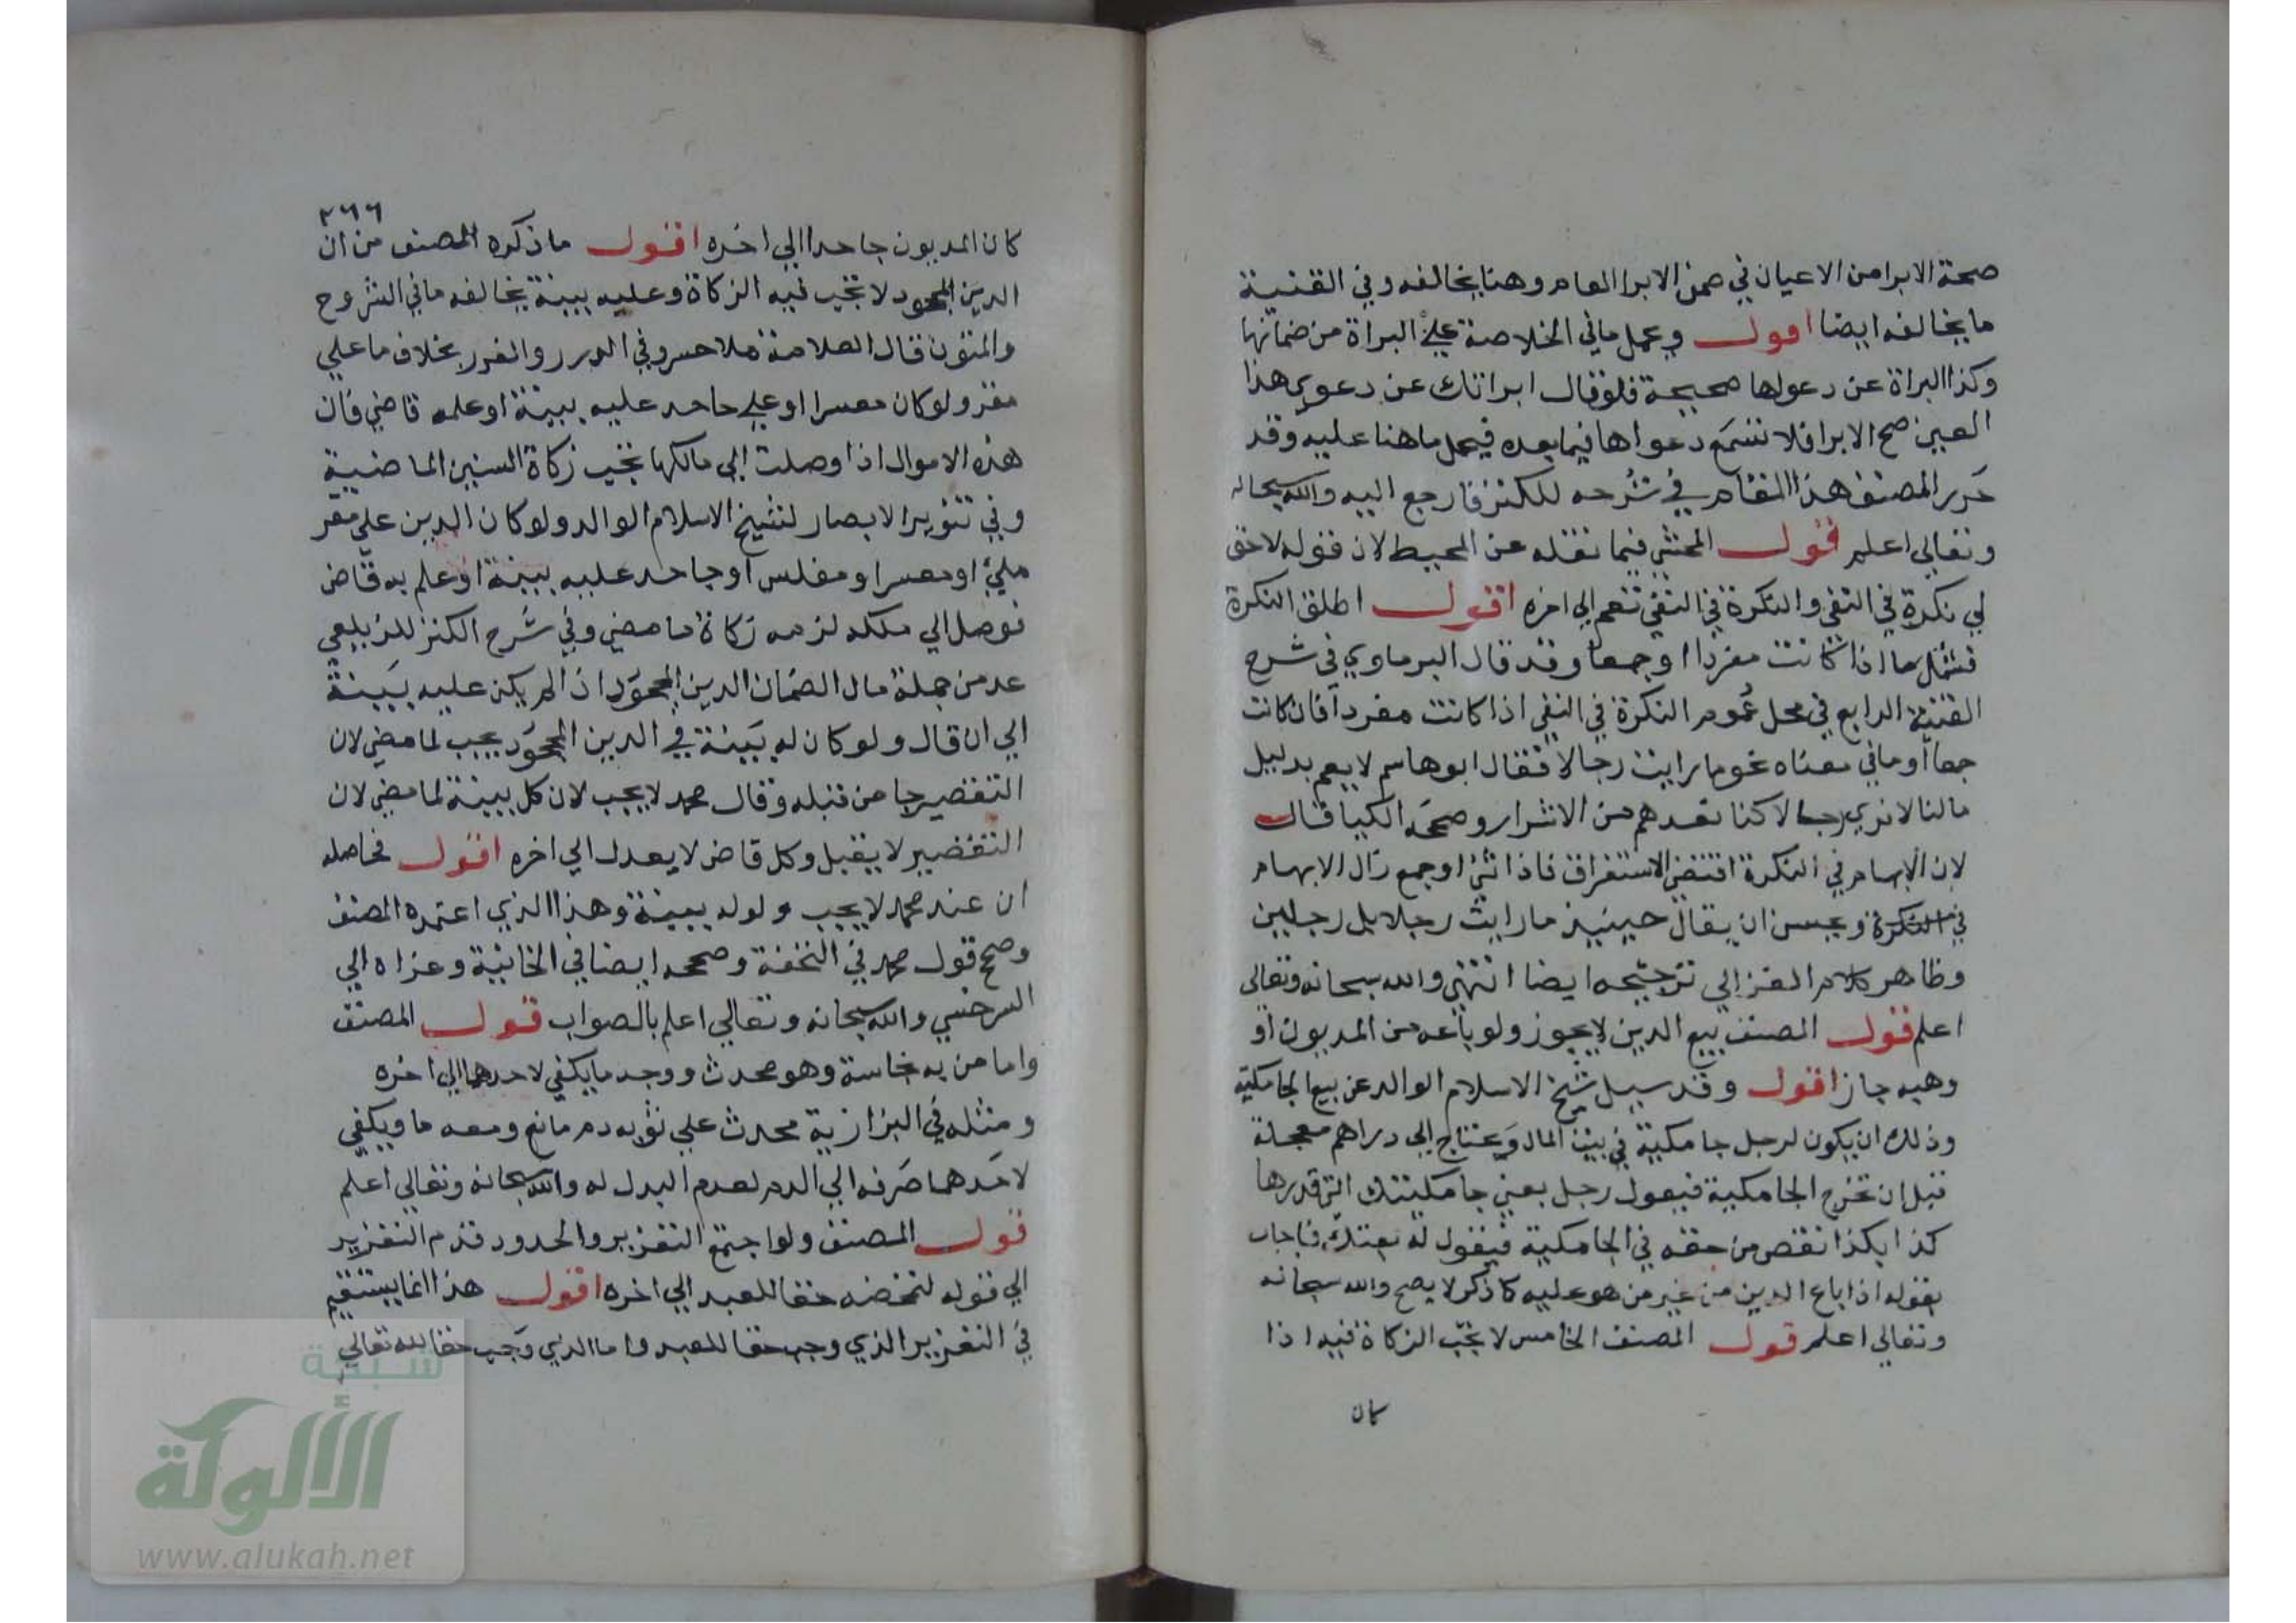 صحة الابرا من الاعيان في ضمن الابرا العام وهنا يخالفه وفي القنية
ما يخالفه ايضا اقول ويحمل ما في الخلاصة علي البراة من ضمانها
وكذا البراة عن دعواها صحيحة فلو قال ابراتك عن دعوي هذا
العين صح الابرا فلا تسمع دعواها فيما بعده فيحمل ما هنا عليه وقد
حرر المصنف هذا المقام في شرحه للكنز فارجع اليه والله سبحانه
وتعالي اعلم قول المحشي فيما نقله عن المحيط لان قوله لا حق
لي نكرة في النفي والنكرة في النفي تعم الي اخره اقول اطلق النكرة
فشمل ما اذا كانت مفردا او جمعا وقد قال البرماوي في شرح
الفنية الرابع في محل عموم النكرة في النفي اذا كانت مفردا فان كانت
جمعا او ما في معناه نحو ما رايت رجالا فقال ابو هاسم لا يعم بدليل
ما لنا لا نري رجالا كنا نعدهم من الاشرار وصححه الكيا قال
لان الابهام في النكرة اقتضي الاستغراق فاذا ثني او جمع زال الابهام
في النكرة ويحسن ان يقال حينيذ ما رايت رجلا بل رجلين
وظاهر كلام الغزالي ترجيحه ايضا انتهي والله سبحانه وتعالي
اعلم قول المصنف بيع الدين لا يجوز ولو باعه من المديون او
وهبه جاز اقول وقد سيل شيخ الاسلام الوالد عن بيع الجامكية
وذلك ان يكون لرجل جامكية في بيت المال ويحتاج الي دراهم معجلة
قبل ان تخرج الجامكية فيقول رجل بعني جامكيتك التي قدرها
كذا بكذا نقص من حقه في الجامكية فيقول له بعتك فاجاب
بقوله اذا باع الدين من غير من هو عليه كا ذكر لا يصح والله سبحانه
وتعالي اعلم قول المصنف الخامس لا تجب الزكاة فيه اذا
كان
٢٦٦
كان المديون جاحدا الي اخره اقول ما ذكره المصنف من ان
الدين المجحود لا تجب فيه الزكاة وعليه بينة يخالفه ما في الشروح
والمتون قال العلامة ملا خسرو في الدرر والغرر بخلاف ما علي
مقر ولو كان معسرا او علي جاحد عليه بينة او علمه قاضي فان
هذه الاموال اذا وصلت الي مالكها تجب زكاة السنين الماضية
وفي تنوير الابصار لشيخ الاسلام الوالد ولو كان الدين علي مقر
ملئ او معسر او مفلس او جاحد عليه بينة او علم به قاض
فوصل الي ملكه لزمه زكاة ما مضي وفي شرح الكنز للزيلعي
عد من جملة مال الضمان الدين المجحود اذ الم يكن عليه بينة
الي ان قال ولو كان له بينة في الدين المجحود يجب لما مضي لان
التقصير جا من قبله وقال محمد لا يجب لان كل بينة لما مضي لان
التقضير لا يقبل وكل قاض لا يعدل الي اخره اقول فحاصله
ان عند محمد لا يجب ولو له بينة وهذا الذي اعتمده المصنف
وصح قول محمد في التحفة وصححه ايضا في الخانية وعزاه الي
السرخسي والله سبحانه وتعالي اعلم بالصواب قول المصنف
واما من به نجاسة وهو محدث ووجد ما يكفي لاحدهما الي اخره
ومثله في البزازية محدث علي ثوبه دم مانع ومعه ما ويكفي
لاحدهما صرفه الي الدم لعدم البدل له والله سبحانه وتعالي اعلم
قول المصنف ولو اجتمع التعزير والحدود قدم التعزير
الي قوله لتمحضه حقا للعبد الي اخره اقول هذا انما يستقيم
في التعزير الذي وجب حقا للعبد واما الذي وجب حقا لله تعالي
شبكة
الألوكة
www.alukah.net